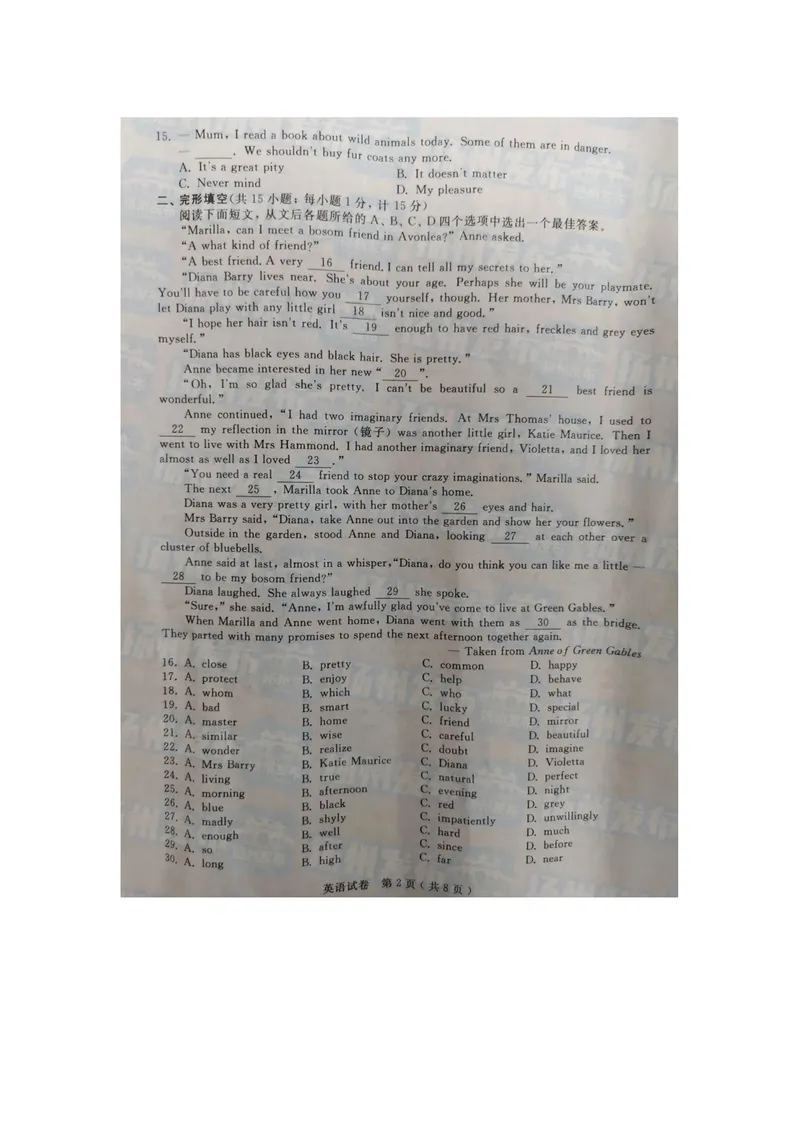 15. — Mum, I read a book about wild animals today. Some of them are in danger.
— ______. We shouldn't buy fur coats any more.
A. It's a great pity B. It doesn't matter
C. Never mind D. My pleasure
二、完形填空(共 15 小题;每小题 1 分,计 15 分)
阅读下面短文,从文后各题所给的 A、B、C、D 四个选项中选出一个最佳答案。
“Marilla, can I meet a bosom friend in Avonlea?” Anne asked.
“A what kind of friend?”
“A best friend. A very 16 friend. I can tell all my secrets to her.”
“Diana Barry lives near. She's about your age. Perhaps she will be your playmate.
You'll have to be careful how you 17 yourself, though. Her mother, Mrs Barry, won't
let Diana play with any little girl 18 isn't nice and good.”
“I hope her hair isn't red. It's 19 enough to have red hair, freckles and grey eyes
myself.”
“Diana has black eyes and black hair. She is pretty.”
Anne became interested in her new “ 20 ”.
“Oh, I'm so glad she's pretty. I can't be beautiful so a 21 best friend is
wonderful.”
Anne continued, “I had two imaginary friends. At Mrs Thomas' house, I used to
22 my reflection in the mirror (镜子) was another little girl, Katie Maurice. Then I
went to live with Mrs Hammond. I had another imaginary friend, Violetta, and I loved her
almost as well as I loved 23 .”
“You need a real 24 friend to stop your crazy imaginations.” Marilla said.
The next 25 , Marilla took Anne to Diana's home.
Diana was a very pretty girl, with her mother's 26 eyes and hair.
Mrs Barry said, “Diana, take Anne out into the garden and show her your flowers.”
Outside in the garden, stood Anne and Diana, looking 27 at each other over a
cluster of bluebells.
Anne said at last, almost in a whisper, “Diana, do you think you can like me a little —
28 to be my bosom friend?”
Diana laughed. She always laughed 29 she spoke.
“Sure,” she said. “Anne, I'm awfully glad you've come to live at Green Gables.”
When Marilla and Anne went home, Diana went with them as 30 as the bridge.
They parted with many promises to spend the next afternoon together again.
— Taken from Anne of Green Gables
16. A. close B. pretty C. common D. happy
17. A. protect B. enjoy C. help D. behave
18. A. whom B. which C. who D. what
19. A. bad B. smart C. lucky D. special
20. A. master B. home C. friend D. mirror
21. A. similar B. wise C. careful D. beautiful
22. A. wonder B. realize C. doubt D. imagine
23. A. Mrs Barry B. Katie Maurice C. Diana D. Violetta
24. A. living B. true C. natural D. perfect
25. A. morning B. afternoon C. evening D. night
26. A. blue B. black C. red D. grey
27. A. madly B. shyly C. impatiently D. unwillingly
28. A. enough B. well C. hard D. much
29. A. so B. after C. since D. before
30. A. long B. high C. far D. near
英语试卷 第 2 页(共 8 页)